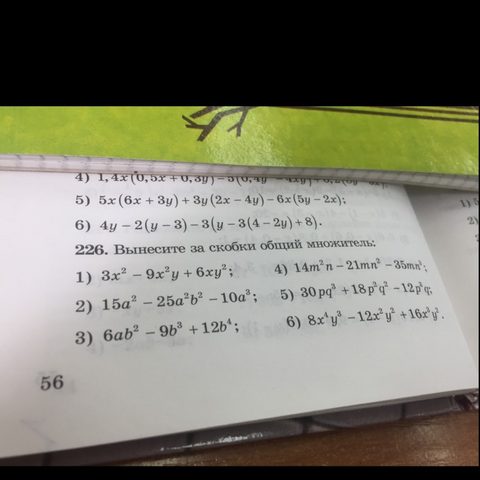 4) 1,4x(0,5x + 0,3y) –
5) 5x(6x + 3y) + 3y(2x – 4y) – 6x(5y – 2x);
6) 4y – 2(y – 3) – 3(y – 3(4 – 2y) + 8).
226. Вынесите за скобки общий множитель:
1) 3x² – 9x²y + 6xy²; 4) 14m²n – 21mn² –
2) 15a² – 25a²b² – 10a³; 5) 30pq³ + 18p²q² – 12p³q;
3) 6ab² – 9b³ + 12b⁴; 6) 8x⁴y³ – 12x²y² + 16x³y³.
56